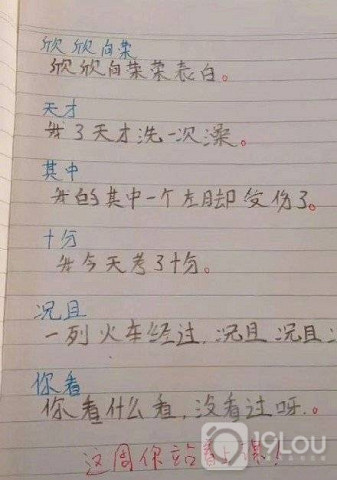 欣欣向荣
欣欣向荣荣表白。
天才
我3天才洗一次澡。
其中
我的其中一个左脚受伤了。
十分
我今天考了十分。
况且
一列火车经过,况且况且
你看
你看什么看,没看过呀。
这周你站着上课!
19LOU